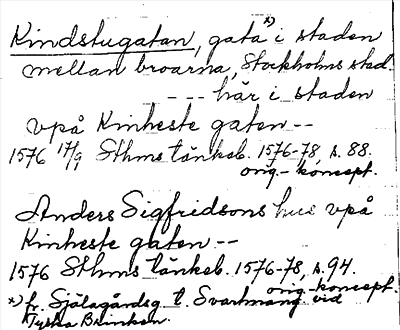 Kindstugatan, gata x) i staden
mellan broarna, Stockholms stad.
--- här i staden
vpå Kinheste gaten --
1576 17/9 Sthms tänkeb. 1576-78, s. 88.
orig.-koncept.
Anders Sigfridsons hus vpå
Kinheste gaten --
1576 Sthms tänkeb. 1576-78, s. 94.
orig.-koncept.
x) fr. Själagårdsg. t. Svartmang. vid
Tyska Brinken.